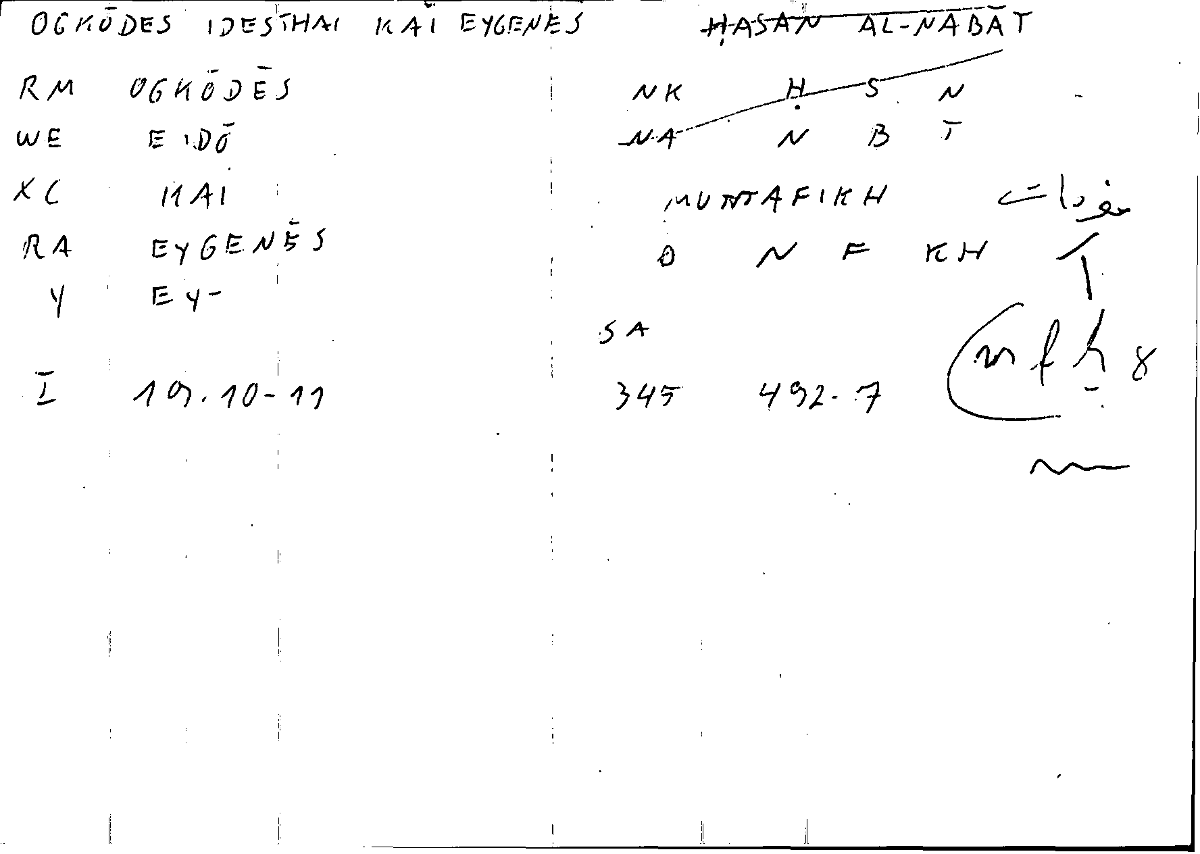 OGKŌDES IDESTHAI KAĪ EYGENES ḤASAN AL-NABĀT
RM OGKŌDĒS NK Ḥ S N
WE EIDŌ NA N B T
XC KAI MUNTAFIKH مفردات
RA EYGENĒS O N F KH
Y EY-
SA
nfḫ 8
I 19.10-11 345 492.7